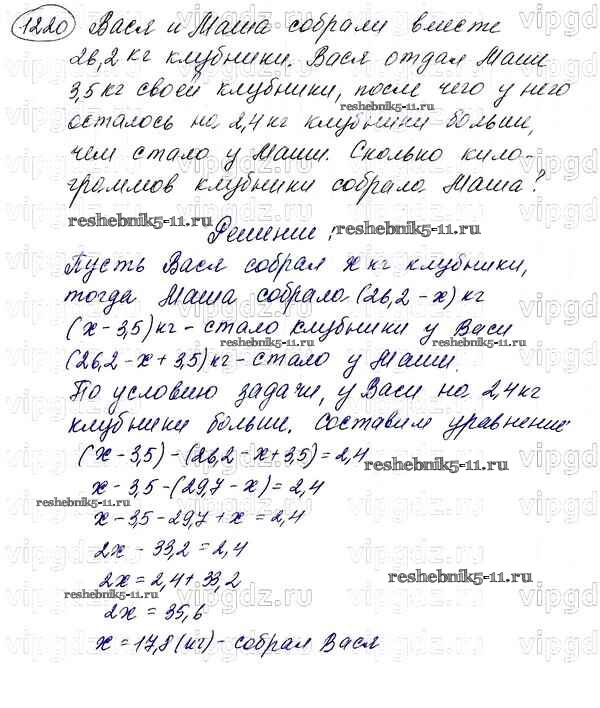 1220 Вася и Маша собрали вместе
26,2 кг клубники. Вася отдал Маше
3,5 кг своей клубники, после чего у него
reshebnik5-11.ru
осталось на 2,4 кг клубники больше,
чем стало у Маши. Сколько кило-
граммов клубники собрала Маша?
reshebnik5-11.ru
Решение:
reshebnik5-11.ru
Пусть Вася собрал x кг клубники,
тогда Маша собрала (26,2 - x) кг
(x - 3,5) кг - стало клубники у Васи
reshebnik5-11.ru
(26,2 - x + 3,5) кг - стало у Маши.
По условию задачи, у Васи на 2,4 кг
клубники больше. Составим уравнение:
(x - 3,5) - (26,2 - x + 3,5) = 2,4
reshebnik5-11.ru
x - 3,5 - (29,7 - x) = 2,4
reshebnik5-11.ru
x - 3,5 - 29,7 + x = 2,4
2x - 33,2 = 2,4
2x = 2,4 + 33,2
reshebnik5-11.ru
2x = 35,6
x = 17,8 (кг) - собрал Вася
vipgdz.ru